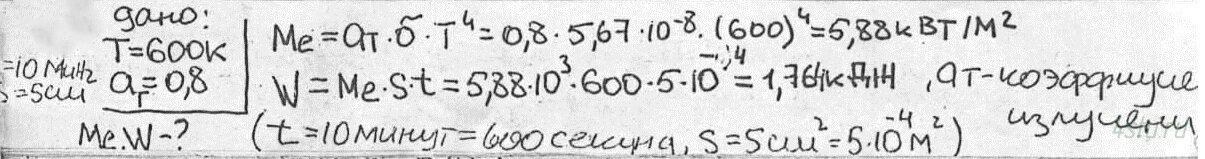 дано:
T=600K
=10 мин
S=5см²
aт=0,8
Me.W-?
Me=aт·б·T⁴=0,8·5,67·10⁻⁸·(600)⁴=5,88кВТ/М²
W=Me·S·t=5,88·10³·600·5·10⁻⁴=1,764кДж, aт-коэффицие
излучени
(t=10минут=600секунд, S=5см²=5·10⁻⁴м²)